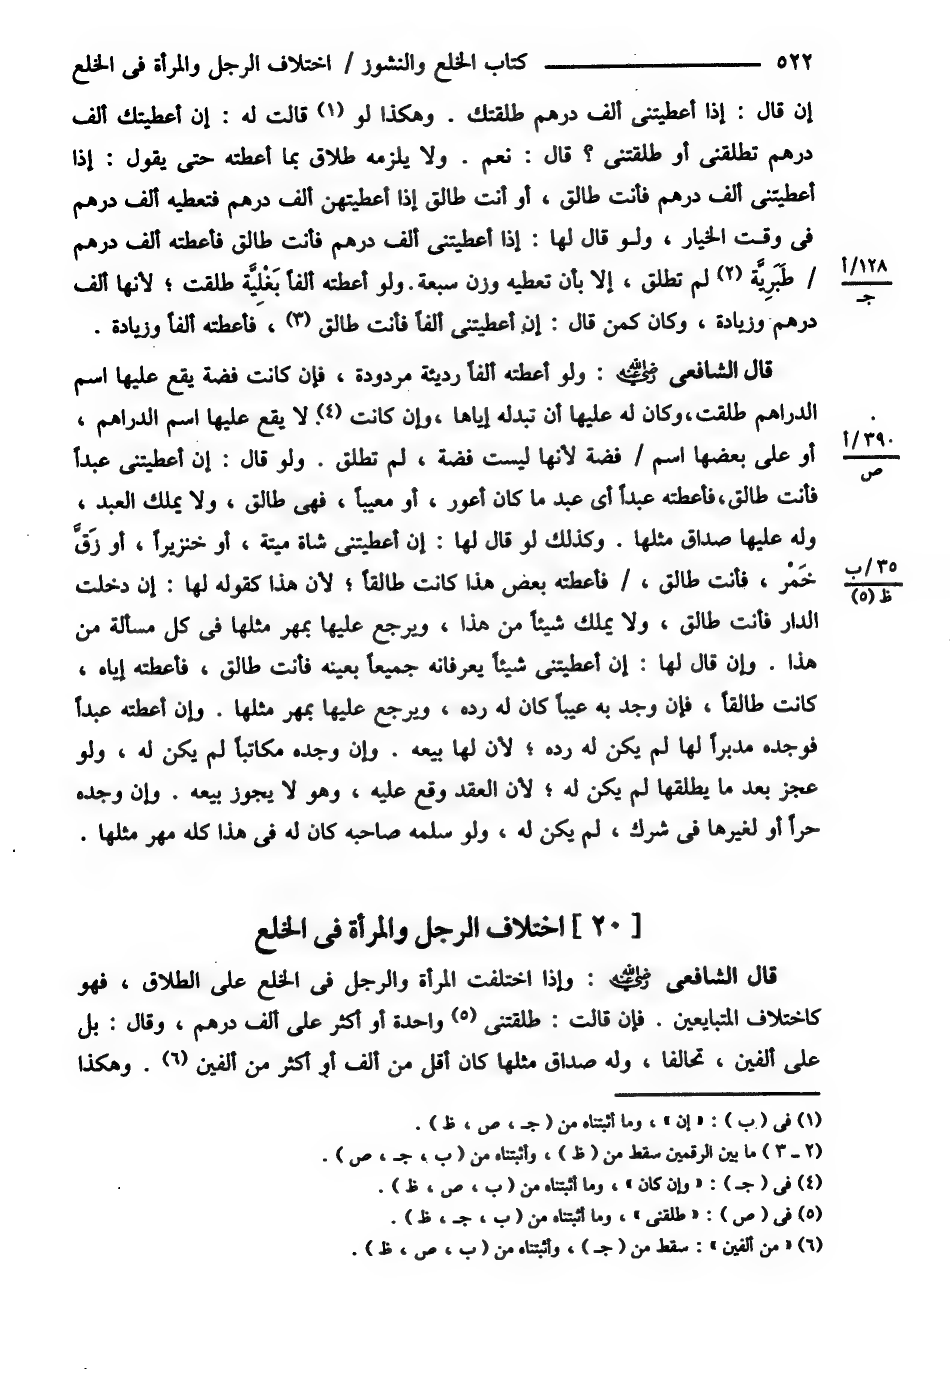 ٥٢٢ ــــــــــــ كتاب الخلع والنشوز / اختلاف الرجل والمرأة فى الخلع
إن قال : إذا أعطيتنى ألف درهم طلقتك . وهكذا لو (١) قالت له : إن أعطيتك ألف
درهم تطلقنى أو طلقتنى ؟ قال : نعم . ولا يلزمه طلاق بما أعطته حتى يقول : إذا
أعطيتنى ألف درهم فأنت طالق ، أو أنت طالق إذا أعطيتهن ألف درهم فتعطيه ألف درهم
فى وقت الخيار ، ولو قال لها : إذا أعطيتنى ألف درهم فأنت طالق فأعطته ألف درهم
١٢٨/أ
جـ
/ طَبَرِيَّة (٢) لم تطلق ، إلا بأن تعطيه وزن سبعة . ولو أعطته ألفاً بَغْلِيَّة طلقت ؛ لأنها ألف
درهم وزيادة ، وكان كمن قال : إن أعطيتنى ألفاً فأنت طالق (٣) ، فأعطته ألفاً وزيادة .
قال الشافعى رضي الله عنه : ولو أعطته ألفاً رديئة مردودة ، فإن كانت فضة يقع عليها اسم
الدراهم طلقت، وكان له عليها أن تبدله إياها ،وإن كانت (٤) لا يقع عليها اسم الدراهم ،
٣٩٠/أ
ص
أو على بعضها اسم / فضة لأنها ليست فضة ، لم تطلق . ولو قال : إن أعطيتنى عبداً
فأنت طالق،فأعطته عبداً أى عبد ما كان أعور ، أو معيباً ، فهى طالق ، ولا يملك العبد ،
وله عليها صداق مثلها . وكذلك لو قال لها : إن أعطيتنى شاة ميتة ، أو خنزيراً ، أو زَقَّ
٣٥/ب
ظ (٥)
خَمْر ، فأنت طالق ، / فأعطته بعض هذا كانت طالقاً ؛ لأن هذا كقوله لها : إن دخلت
الدار فأنت طالق ، ولا يملك شيئاً من هذا ، ويرجع عليها بمهر مثلها فى كل مسألة من
هذا . وإن قال لها : إن أعطيتنى شيئاً يعرفانه جميعاً بعينه فأنت طالق ، فأعطته إياه ،
كانت طالقاً ، فإن وجد به عيباً كان له رده ، ويرجع عليها بمهر مثلها . وإن أعطته عبداً
فوجده مدبراً لها لم يكن له رده ؛ لأن لها بيعه . وإن وجده مكاتباً لم يكن له ، ولو
عجز بعد ما يطلقها لم يكن له ؛ لأن العقد وقع عليه ، وهو لا يجوز بيعه . وإن وجده
حراً أو لغيرها فى شرك ، لم يكن له ، ولو سلمه صاحبه كان له فى هذا كله مهر مثلها .
[ ٢٠ ] اختلاف الرجل والمرأة فى الخلع
قال الشافعى رضي الله عنه : وإذا اختلفت المرأة والرجل فى الخلع على الطلاق ، فهو
كاختلاف المتبايعين . فإن قالت : طلقتنى (٥) واحدة أو أكثر على ألف درهم ، وقال : بل
على ألفين ، تحالفا ، وله صداق مثلها كان أقل من ألف أو أكثر من ألفين (٦) . وهكذا
(١) فى ( ب ) : « إن » ، وما أثبتناه من ( جـ ، ص ، ظ ) .
(٢ ـ ٣ ) ما بين الرقمين سقط من ( ظ ) ، وأثبتناه من ( ب ، جـ ، ص ) .
(٤) فى ( جـ ) : « وإن كان » ، وما أثبتناه من ( ب ، ص ، ظ ) .
(٥) فى ( ص ) : « طلقنى » ، وما أثبتناه من ( ب ، جـ ، ظ ) .
(٦) « من ألفين » : سقط من ( جـ ) ، وأثبتناه من ( ب ، ص ، ظ ) .